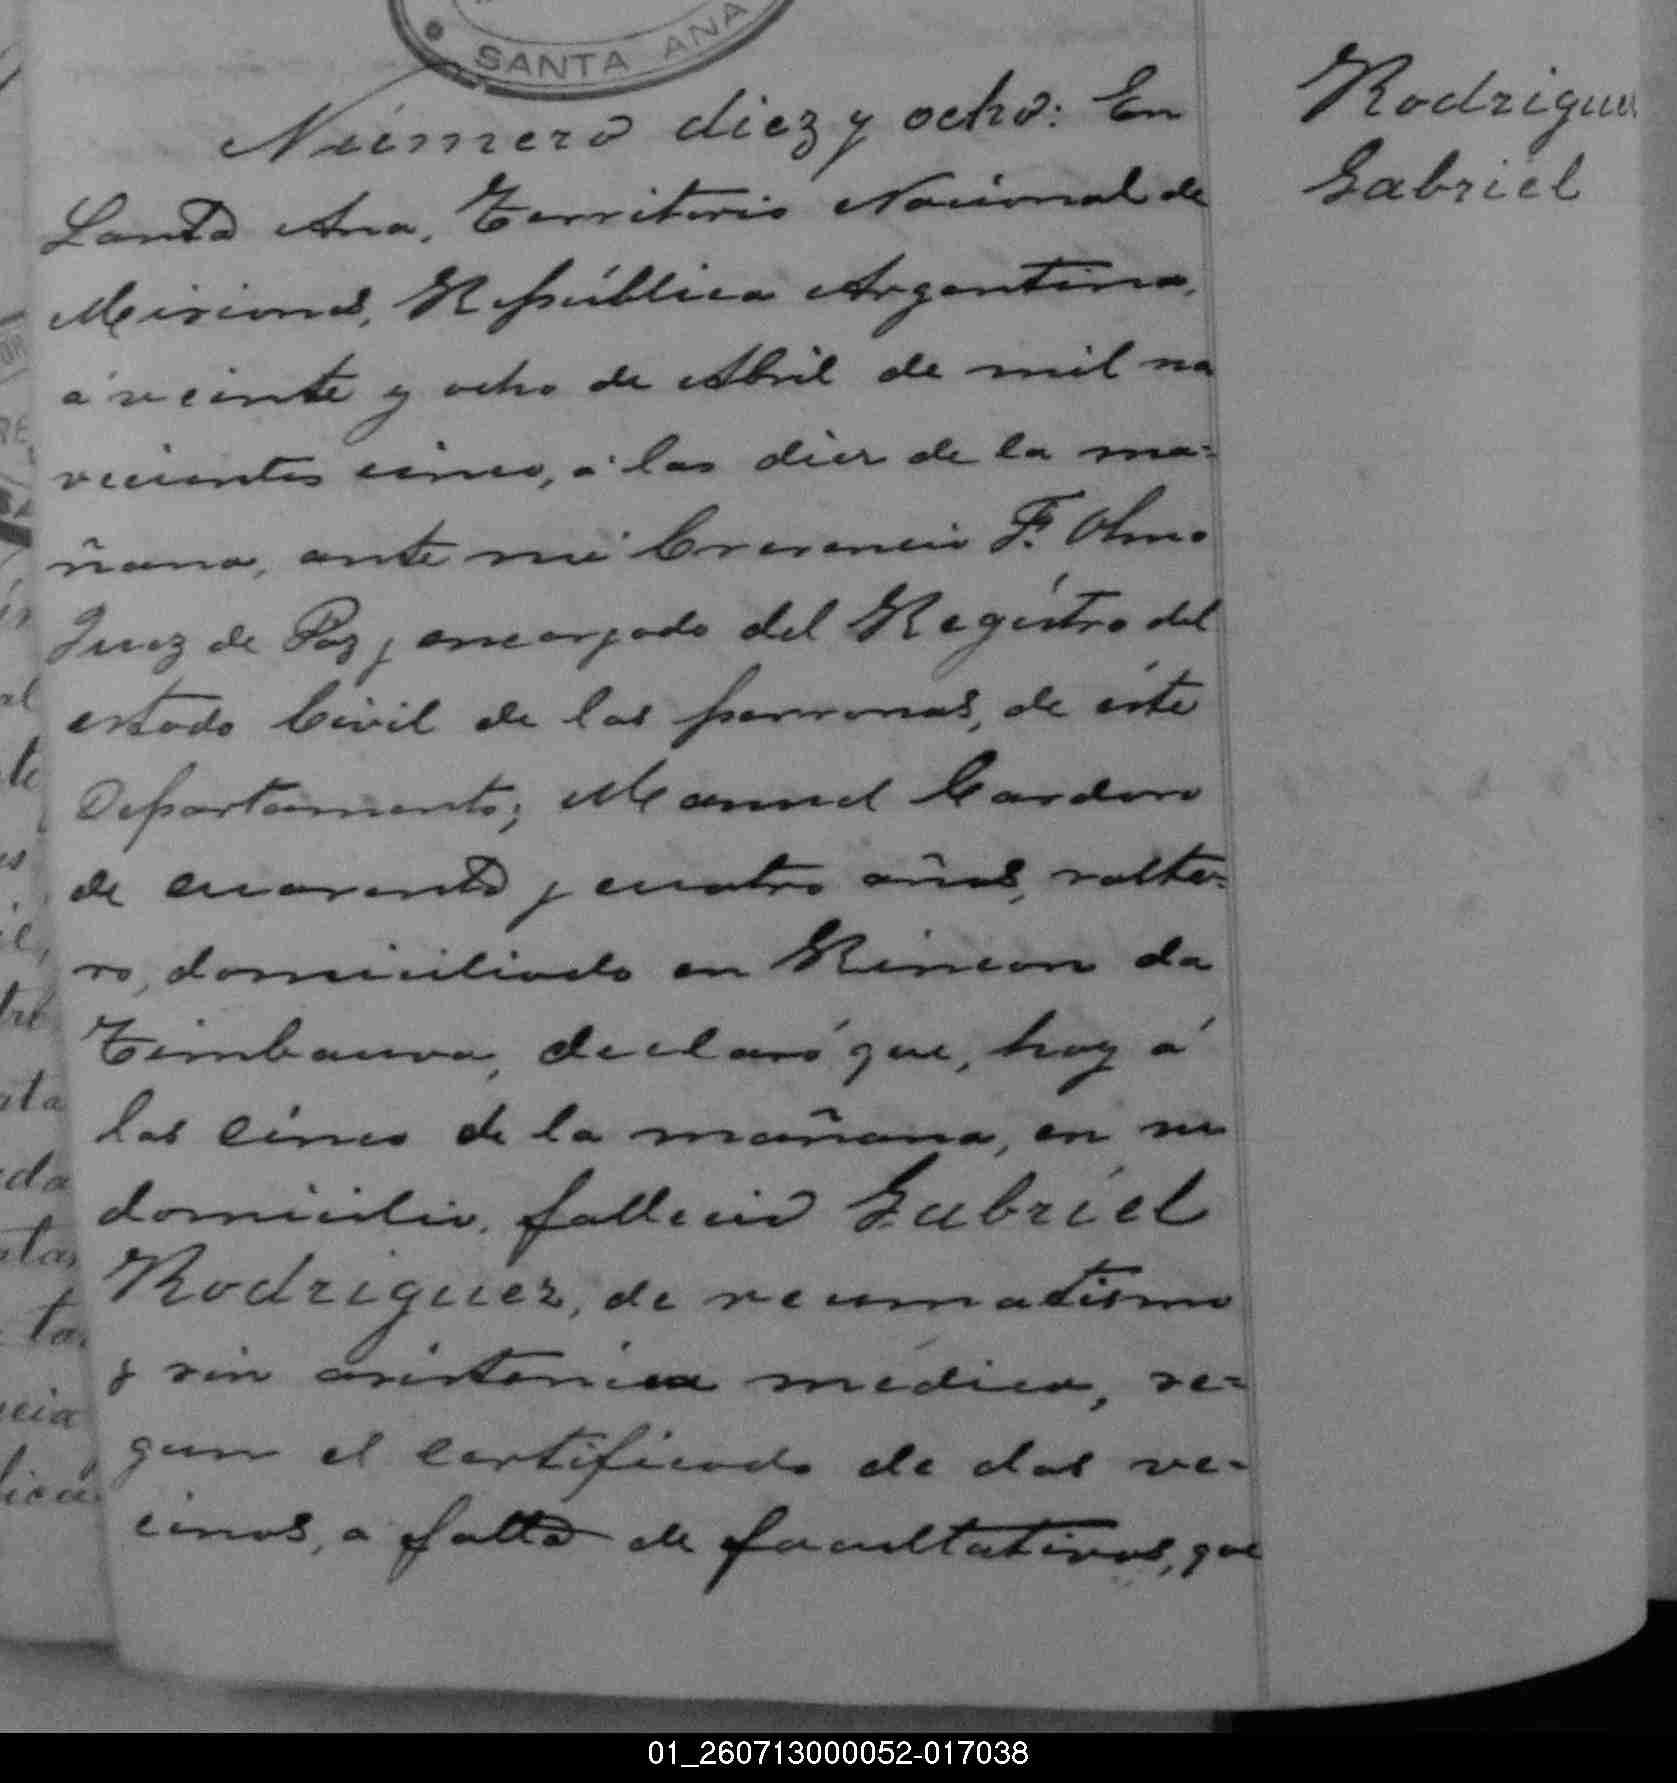 SANTA ANA
Número diez y ocho: En
Santa Ana, Territorio Nacional de
Misiones, República Argentina,
á veinte y ocho de Abril de mil no
vecientos cinco, á las diez de la ma=
ñana, ante mi Cresencio F. Olmo
Juez de Paz y encargado del Registro del
estado Civil de las personas, de éste
Departamento; Manuel Cardoso
de cuarenta y cuatro años, solte=
ro, domiciliado en Rincon da
Timbauva, declaró que, hoy á
las cinco de la mañana, en su
domicilio, falleció Gabriel
Rodriguez, de reumatismo
y sin asistencia médica, se=
gun el certificado de dos ve=
cinos, a falta de facultativos, que
Rodriguez
Gabriel
01_260713000052-017038